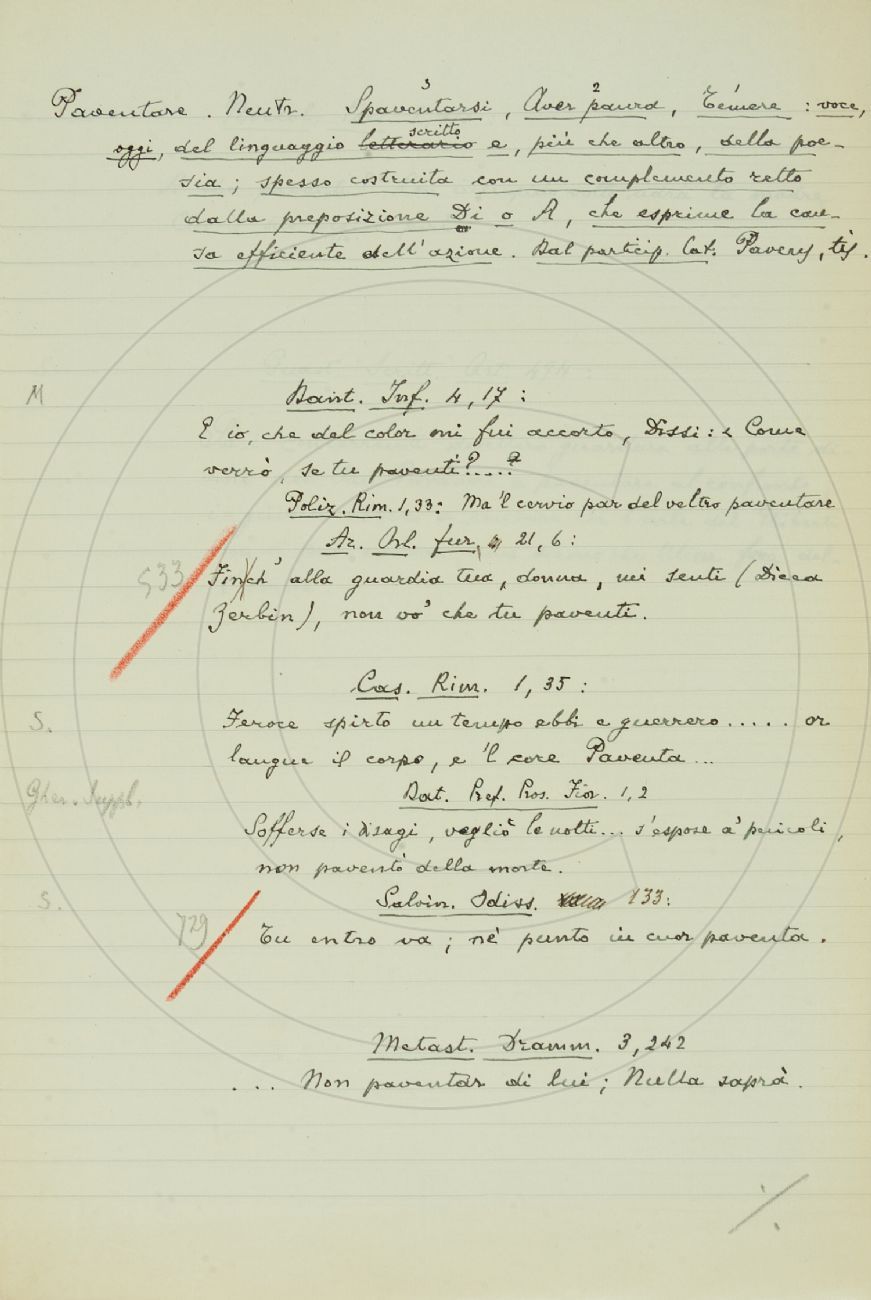 3 2
Paventare. Neutr. Spaventarsi, Aver paura, Temere: voce,
oggi, del linguaggio letterario scritto e, più che altro, della poe-
sia; spesso costruita con un complemento retto
dalla preposizione Di o A, che esprime la cau-
sa efficiente dell'azione. Dal particip. lat. Pavens, tis.
M
Dant. Inf. 4, 17:
E io, che del color mi fui accorto, Dissi: « Come
verrò, se tu paventi?...?
Poliz. Rim. 1, 33: Ma 'l cervio par del veltro paventare
Ar. Orl. fur. 21, 6:
533 Finch' alla guardia tua, donna, mi senti (Dicea
Zerbin), non vo' che tu paventi.
Cas. Rim. 1, 35:
S. Feroce spirto un tempo ebbi e guerrero..... or
langue il corpo, e 'l core Paventa...
Gher. Suppl. Dat. Pref. Pros. Fior. 1, 2
Sofferse i disagi, vegliò le notti... s'espose a' pericoli,
non paventò della morte.
S. Salvin. Odiss. 133:
729 Tu entro va; nè punto in cuor paventa.
Metast. Dramm. 3, 242
... Non paventar di lui; Nulla saprà.